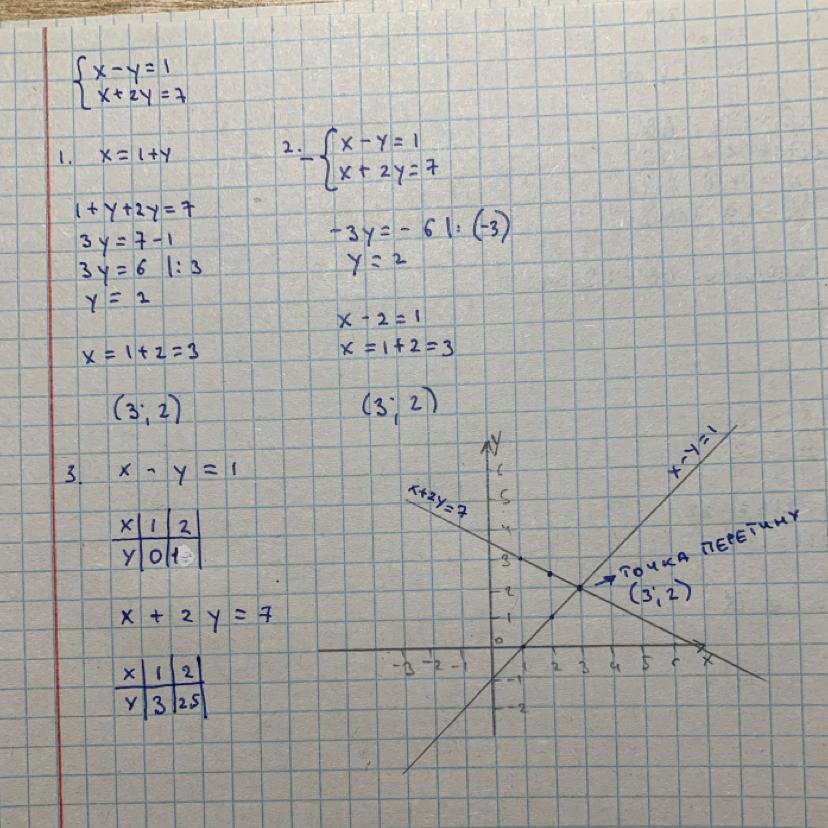 {x - y = 1
x + 2y = 7
1. x = 1 + y
1 + y + 2y = 7
3y = 7 - 1
3y = 6 |: 3
y = 2
x = 1 + 2 = 3
(3; 2)
2. - {x - y = 1
x + 2y = 7
-3y = - 6 |: (-3)
y = 2
x - 2 = 1
x = 1 + 2 = 3
(3; 2)
3. x - y = 1
x | 1 | 2
y | 0 | 1
x + 2y = 7
x | 1 | 2
y | 3 | 25
y
6
5
4
3
2
1
0
-1
-2
-3 -2 -1 1 2 3 4 5 6 x
x+2y=7
x-y=1
ТОЧКА ПЕРЕТИНУ
(3; 2)